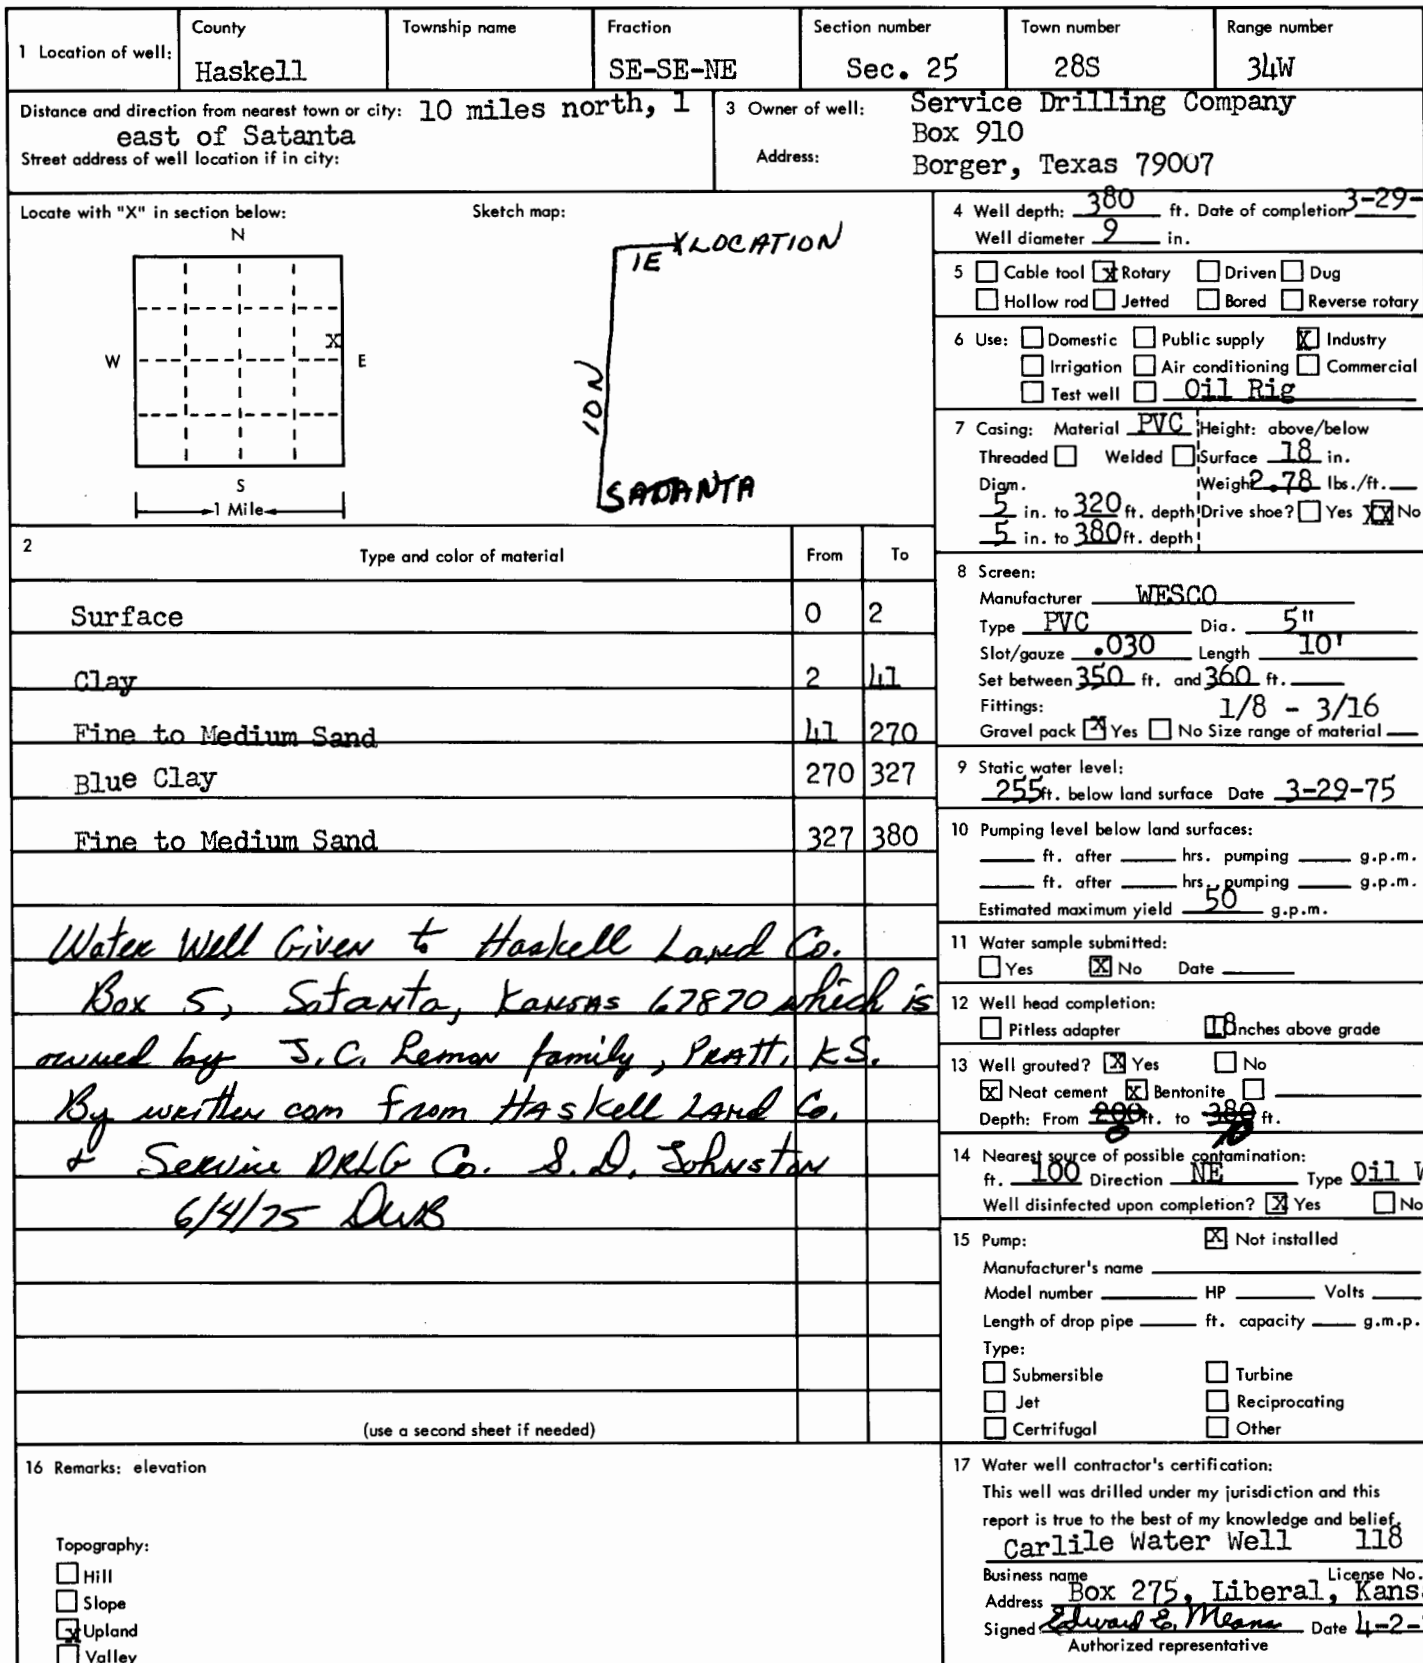 1 Location of well: County Township name Fraction Section number Town number Range number
Haskell SE-SE-NE Sec. 25 28S 34W
Distance and direction from nearest town or city: 10 miles north, 1
east of Satanta
Street address of well location if in city:
3 Owner of well: Service Drilling Company
Box 910
Address: Borger, Texas 79007
Locate with "X" in section below:
N
X
W E
S
1 Mile
Sketch map:
1E X LOCATION
10 N
SATANTA
2 Type and color of material From To
Surface 0 2
Clay 2 41
Fine to Medium Sand 41 270
Blue Clay 270 327
Fine to Medium Sand 327 380
Water Well Given to Haskell Land Co.
Box 5, Satanta, Kansas 67870 which is
owned by J.C. Lemon family, Pratt, KS.
By written com from Haskell Land Co.
& Service DRLG Co. S.D. Johnston
6/4/75 DWB
(use a second sheet if needed)
4 Well depth: 380 ft. Date of completion 3-29-
Well diameter 9 in.
5 Cable tool X Rotary Driven Dug
Hollow rod Jetted Bored Reverse rotary
6 Use: Domestic Public supply X Industry
Irrigation Air conditioning Commercial
Test well Oil Rig
7 Casing: Material PVC Height: above/below
Threaded Welded Surface 18 in.
Diam. Weight 2.78 lbs./ft.
5 in. to 320 ft. depth Drive shoe? Yes XX No
5 in. to 380 ft. depth
8 Screen:
Manufacturer WESCO
Type PVC Dia. 5"
Slot/gauze .030 Length 10'
Set between 350 ft. and 360 ft.
Fittings: 1/8 - 3/16
Gravel pack X Yes No Size range of material
9 Static water level:
255 ft. below land surface Date 3-29-75
10 Pumping level below land surfaces:
ft. after hrs. pumping g.p.m.
ft. after hrs. pumping g.p.m.
Estimated maximum yield 50 g.p.m.
11 Water sample submitted:
Yes X No Date
12 Well head completion:
Pitless adapter 18 Inches above grade
13 Well grouted? X Yes No
X Neat cement X Bentonite
Depth: From 200 ft. to 380 ft.
0 10
14 Nearest source of possible contamination:
ft. 100 Direction NE Type Oil W
Well disinfected upon completion? X Yes No
15 Pump: X Not installed
Manufacturer's name
Model number HP Volts
Length of drop pipe ft. capacity g.m.p.
Type:
Submersible Turbine
Jet Reciprocating
Certrifugal Other
16 Remarks: elevation
Topography:
Hill
Slope
X Upland
Valley
17 Water well contractor's certification:
This well was drilled under my jurisdiction and this
report is true to the best of my knowledge and belief.
Carlile Water Well 118
Business name License No.
Address Box 275, Liberal, Kans
Signed Edward E. Means Date 4-2-
Authorized representative